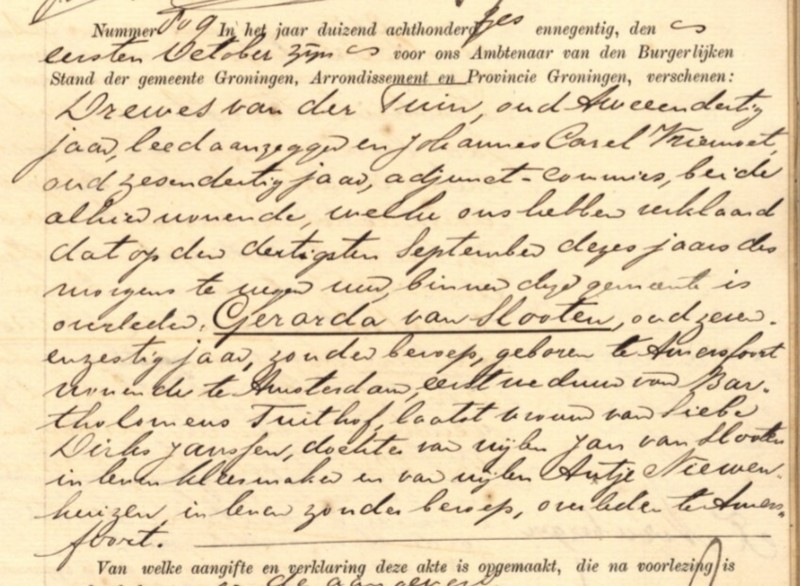 Nummer 809 In het jaar duizend achthonderd zes ennegentig, den
eersten October zijn voor ons Ambtenaar van den Burgerlijken
Stand der gemeente Groningen, Arrondissement en Provincie Groningen, verschenen:
Drewes van der Tuin, oud tweeendertig
jaar, leedaanzegger en Johannes Carel Vriemoet,
oud zesendertig jaar, adjunct-commies, beide
alhier wonende, welke ons hebben verklaard
dat op den dertigsten September dezes jaars des
morgens te negen uur, binnen deze gemeente is
overleden, Gerarda van Slooten, oud zeven-
enzestig jaar, zonder beroep, geboren te Amersfoort
wonende te Amsterdam, eerst weduwe van Bar-
tholomeus Tuithof, laatst vrouw van Siebe
Dirks Janssen, dochter van wijlen Jan van Slooten
in leven kleermaker en van wijlen Antje Niewen-
huizen in leven zonder beroep, overleden te Amers-
foort.
Van welke aangifte en verklaring deze akte is opgemaakt, die na voorlezing is
de aangevers